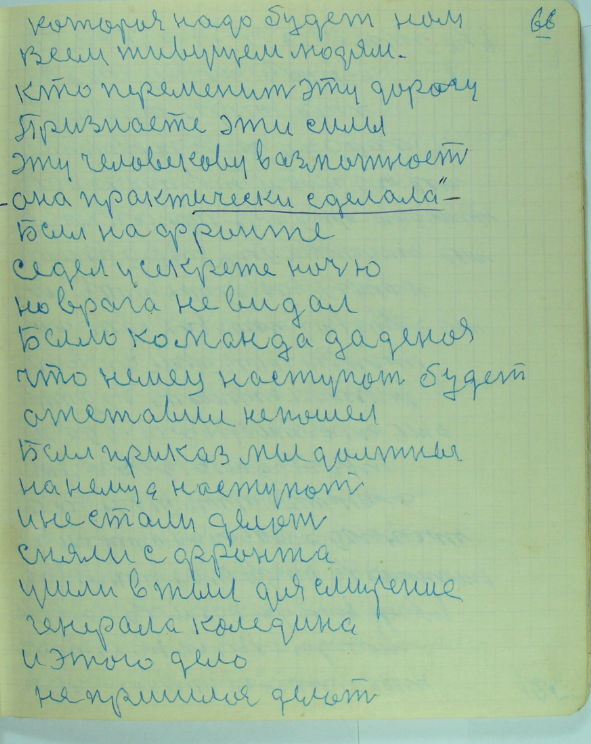 которая надо будет нам
66
всем живущем людям.
кто переменит эту дорогу
Признаете эти силы
эту человекову вазможност
— она практически сделала" —
Бели на фронте
седел у секрете ночю
но врага не видал
Было команда даденоя
что немец наступат будет
отставили не пошел
Был приказ мы должны
на немца наступат
и не стали делат
сняли с фронта
ушли в тыл для смирение
генерала Каледина
и этого дело
не пришлос делат